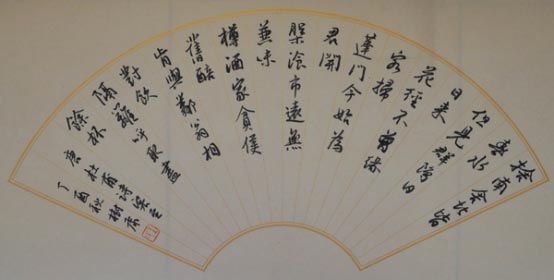 捨南舍北皆
春水
但見群鷗日
日來
花徑不曾緣
客掃
蓬門今始為
君開
槃飧市遠無
兼味
樽酒家貧
舊醅
肯與鄰翁相
對飲
隔籬呼取盡
餘杯
唐杜甫詩客至
丁酉秋樹